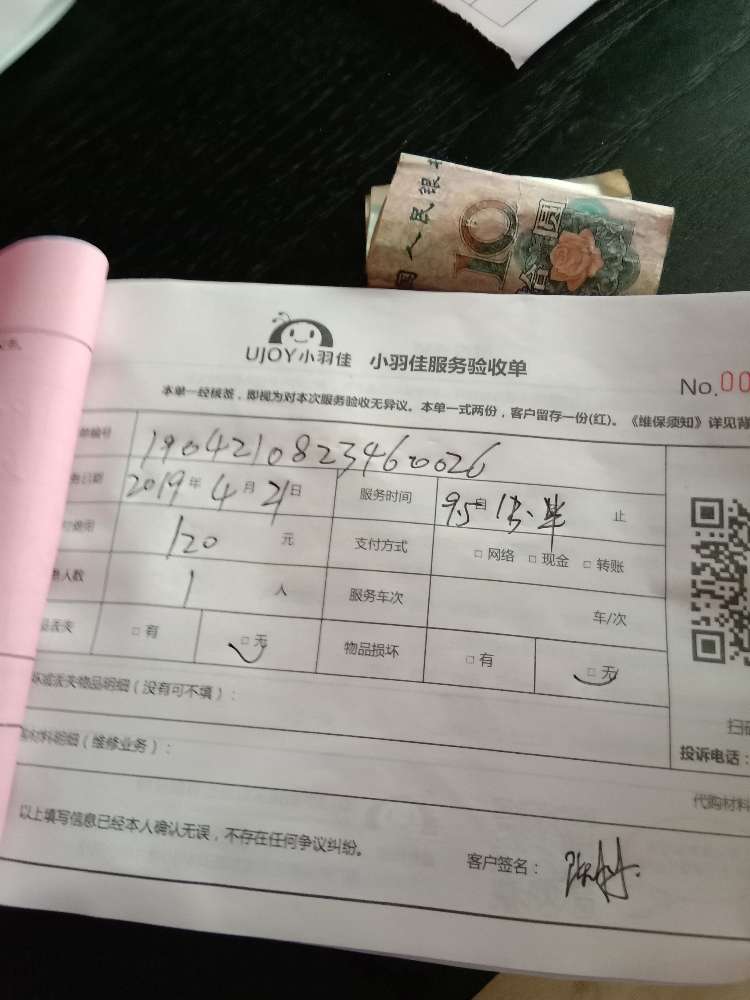 人民银
10
圆
UJOY小羽佳 小羽佳服务验收单
No.00
本单一经核签，即视为对本次服务验收无异议。本单一式两份，客户留存一份(红)。《维保须知》详见背
编号 1904210823460026
日期 2019年4月21日 服务时间 9.5 止
费用 120 元 支付方式 □ 网络 □ 现金 □ 转账
人数 1 人 服务车次 车/次
丢失 □ 有 □ 无 物品损坏 □ 有 □ 无
坏或丢失物品明细（没有可不填）：
扫码
材料明细（维修业务）：
投诉电话：
代购材料
以上填写信息已经本人确认无误，不存在任何争议纠纷。
客户签名：